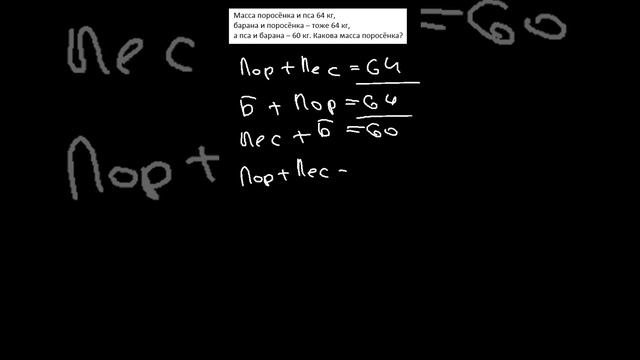 Масса поросёнка и пса 64 кг,
барана и поросёнка – тоже 64 кг,
а пса и барана – 60 кг. Какова масса поросёнка?
Пор + Пес = 64
Б + Пор = 64
Пес + Б = 60
Пор + Пес -
Пес
= 60
Пор +